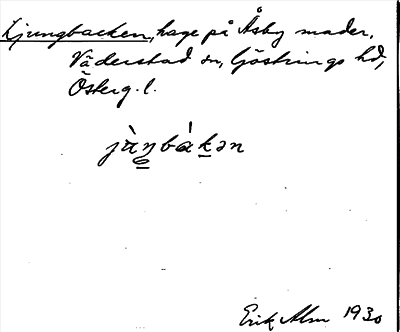 Ljungbacken, hage på Åsby mader,
Väderstad sn, Göstrings hd,
Österg. l.
jàŋbákən
Erik Alm 1930